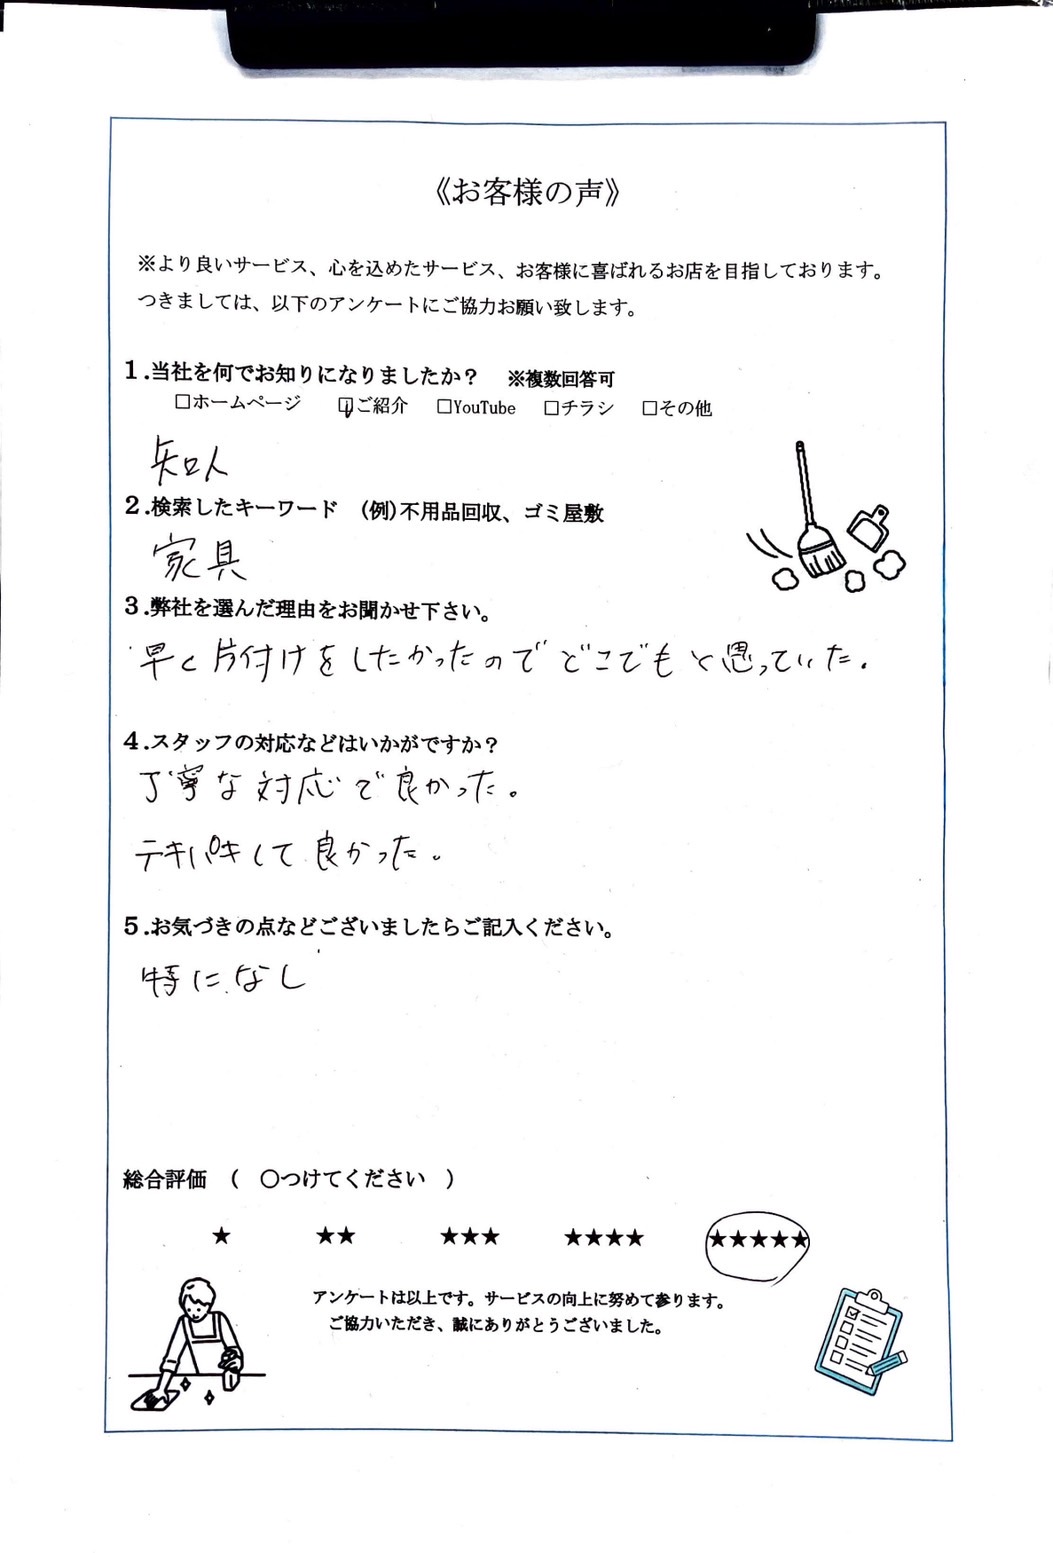 《お客様の声》
※より良いサービス、心を込めたサービス、お客様に喜ばれるお店を目指しております。
つきましては、以下のアンケートにご協力お願い致します。
1.当社を何でお知りになりましたか？ ※複数回答可
□ホームページ □ご紹介 □YouTube □チラシ □その他
知人
2.検索したキーワード (例)不用品回収、ゴミ屋敷
家具
3.弊社を選んだ理由をお聞かせ下さい。
早く片付けをしたかったのでどこでもと思っていた。
4.スタッフの対応などはいかがですか？
丁寧な対応で良かった。
テキパキして良かった。
5.お気づきの点などございましたらご記入ください。
特になし
総合評価 ( ○つけてください )
★ ★★ ★★★ ★★★★ ★★★★★
アンケートは以上です。サービスの向上に努めて参ります。
ご協力いただき、誠にありがとうございました。